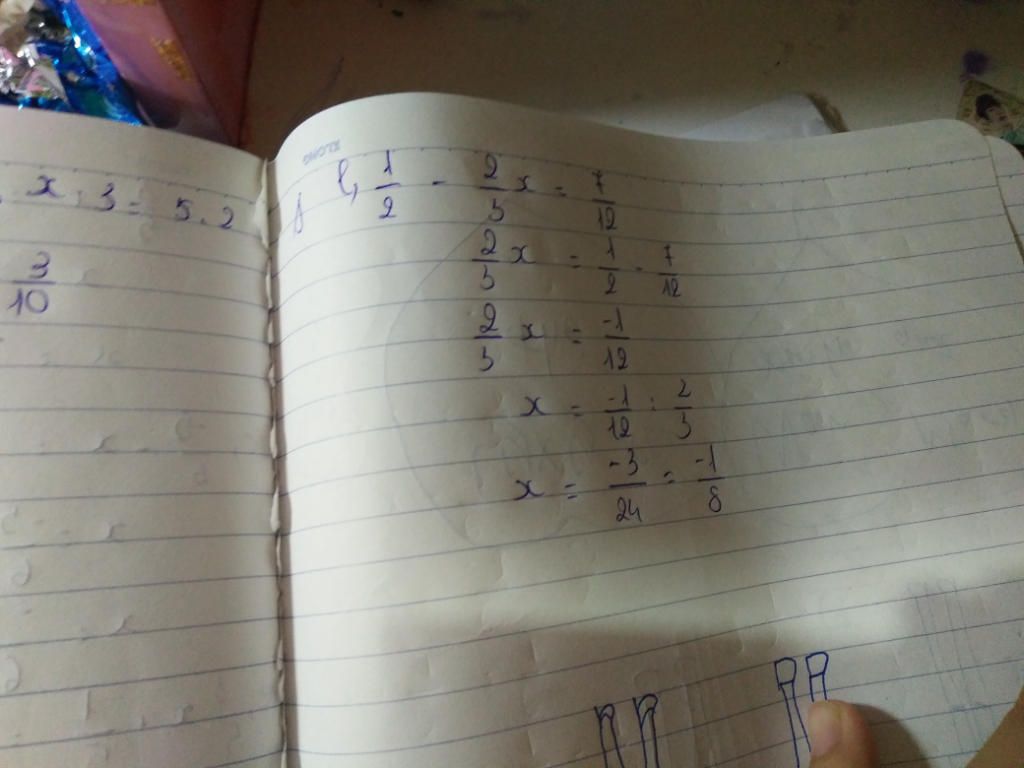 x : 3 = 5 . 2
3/10
KLONG
1/2 - 2/3 x = 7/12
2/3 x = 1/2 - 7/12
2/3 x = -1/12
x = -1/12 : 2/3
x = -3/24 = -1/8